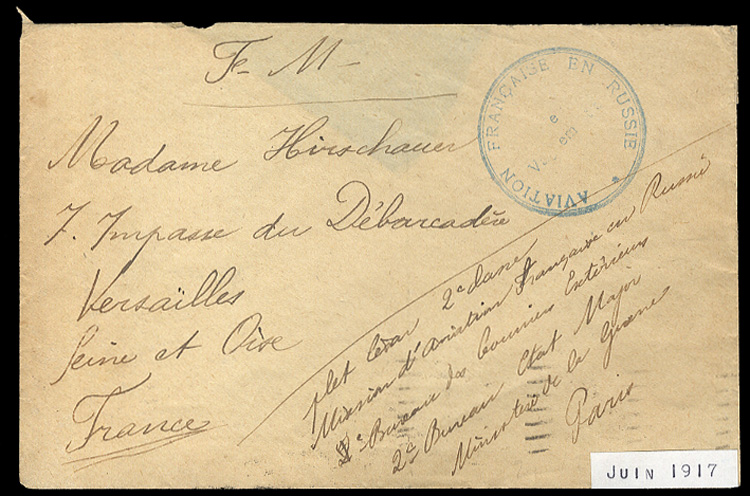 F - M -
Madame Hirschauer
7. Impasse du Débarcadère
Versaïlles
Seine et Oise
France
AVIATION FRANÇAISE EN RUSSIE *
e
em
V
2e classe
Mission d'Aviation Française en Russie
Bureau des Courriers Extérieurs
2e Bureau Etat Major
Ministère de la Guerre
Paris
JUIN 1917